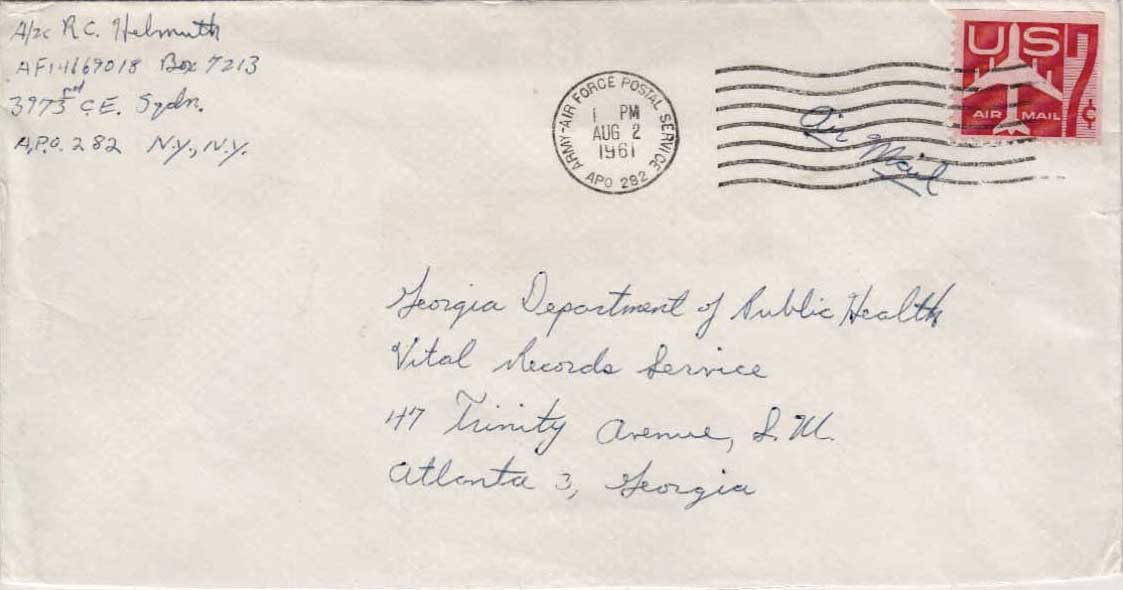 A/2c R.C. Helmuth
AF14669018 Box 7213
3973rd C.E. Sqdn.
A.P.O. 282 N.Y., N.Y.
ARMY-AIR FORCE POSTAL SERVICE
1 PM
AUG 2
1961
APO 282
US 7¢
AIR MAIL
Air Mail
Georgia Department of Public Health
Vital Records Service
47 Trinity Avenue, S.W.
Atlanta 3, Georgia